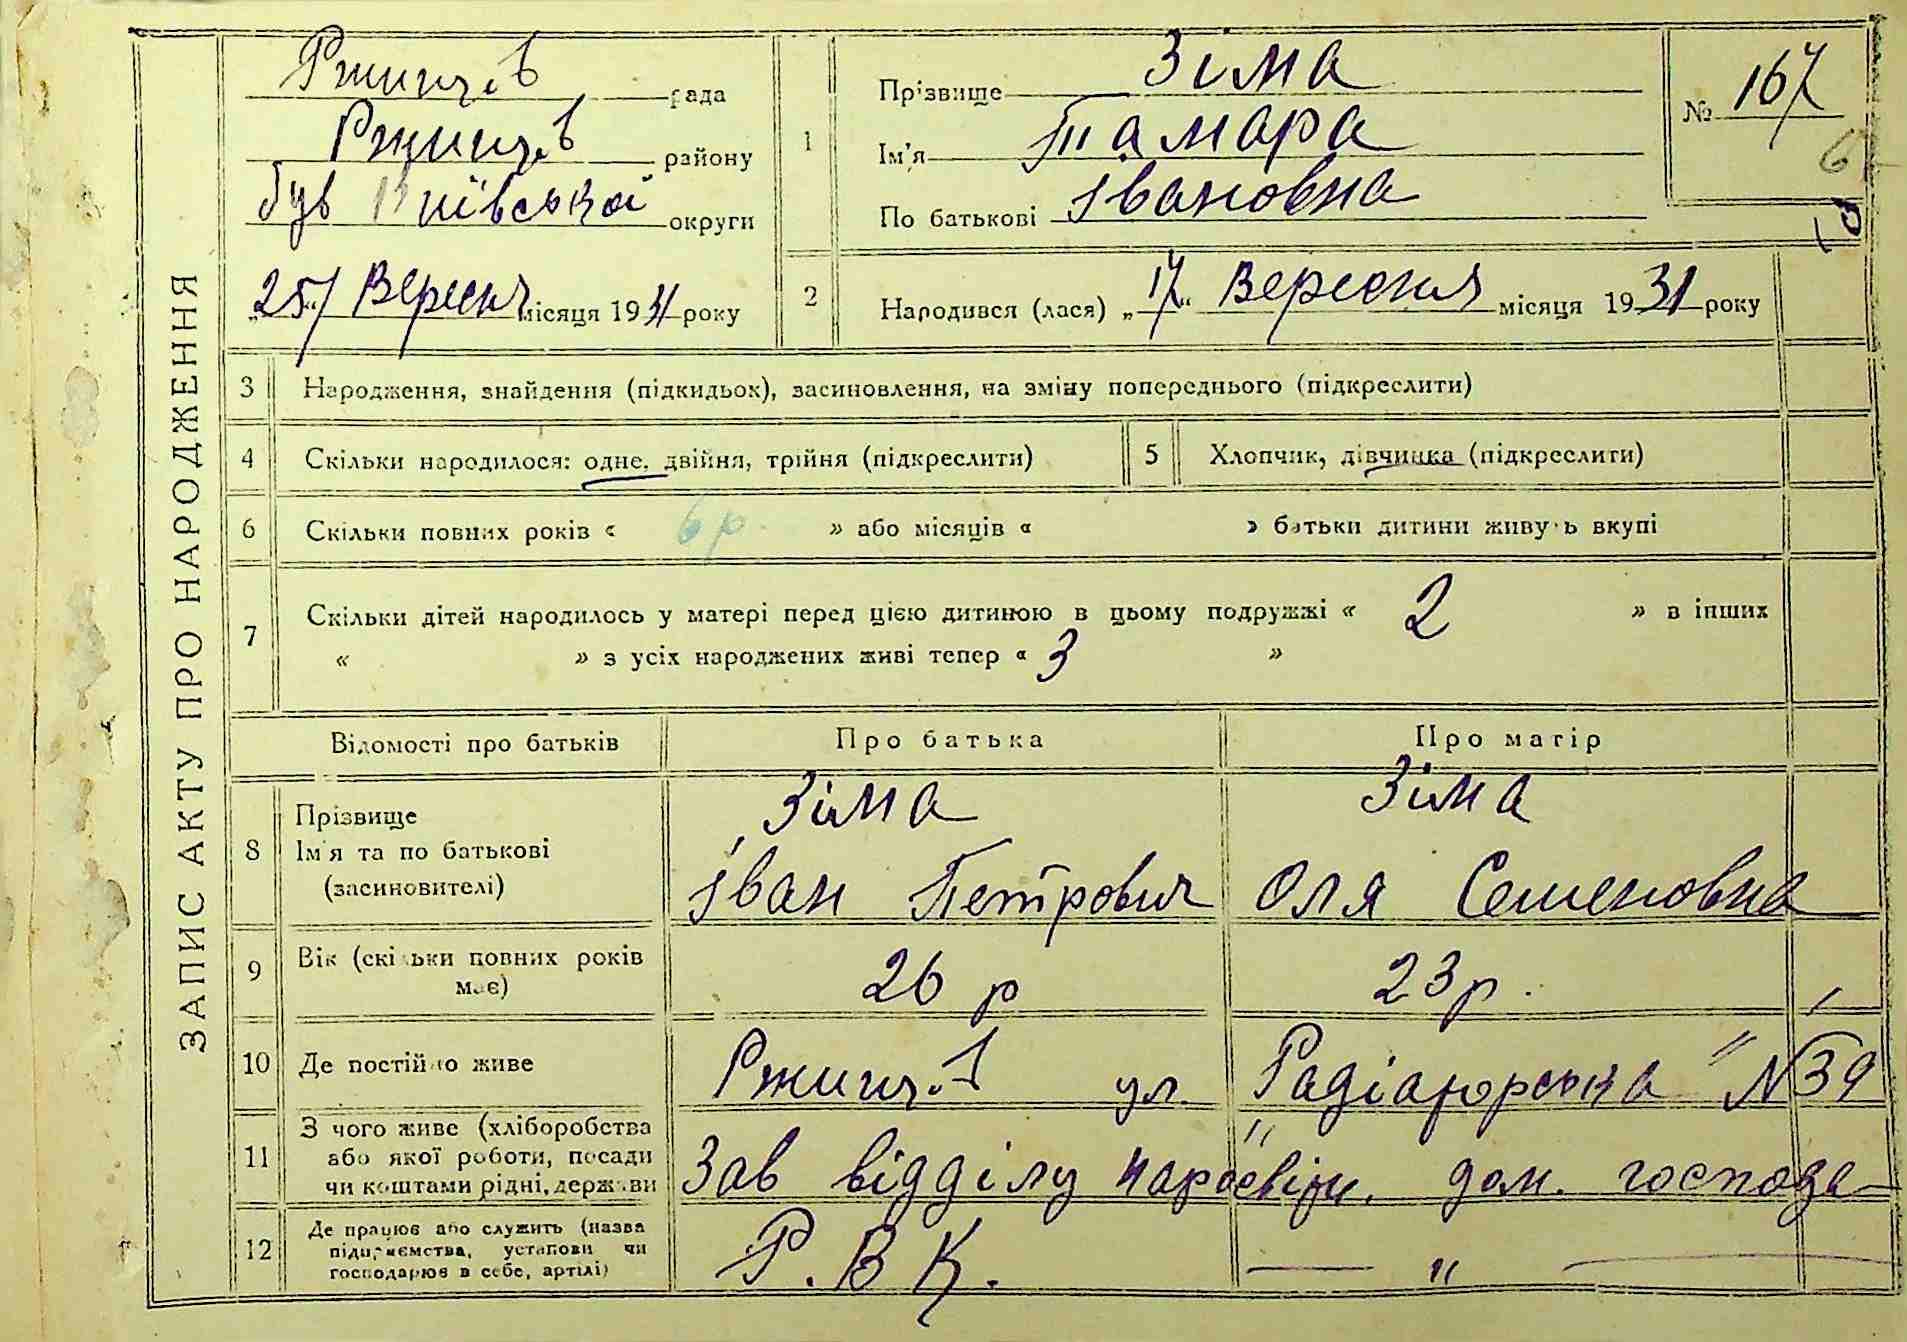 ЗАПИС АКТУ ПРО НАРОДЖЕННЯ
Ржищів рада
Ржищів району
був Київської округи
„25“ Вересня місяця 1931 року
1
Прізвище Зіма
Ім'я Тамара
По батькові Івановна
№ 167
6
2
Народився (лася) „17“ Вересня місяця 1931 року
3 Народження, знайдення (підкидьок), засиновлення, на зміну попереднього (підкреслити)
4 Скільки народилося: одне, двійня, трійня (підкреслити)
5 Хлопчик, дівчинка (підкреслити)
6 Скільки повних років « 6 р. » або місяців « » батьки дитини живуть вкупі
7 Скільки дітей народилось у матері перед цією дитиною в цьому подружжі « 2 » в інших
« » з усіх народжених живі тепер « 3 »
Відомості про батьків Про батька Про матір
8 Прізвище Зіма Зіма
Ім'я та по батькові Іван Петрович Оля Семеновна
(засиновителі)
9 Вік (скільки повних років має) 26 р 23 р.
10 Де постійно живе Ржищів ул. №39
11 З чого живе (хліборобства або якої роботи, посади чи коштами рідні, держави Зав відділу наросвіти. дом. господа-
12 Де працює або служить (назва підприємства, установи чи господарює в себе, артілі) Р.В.К. — " —